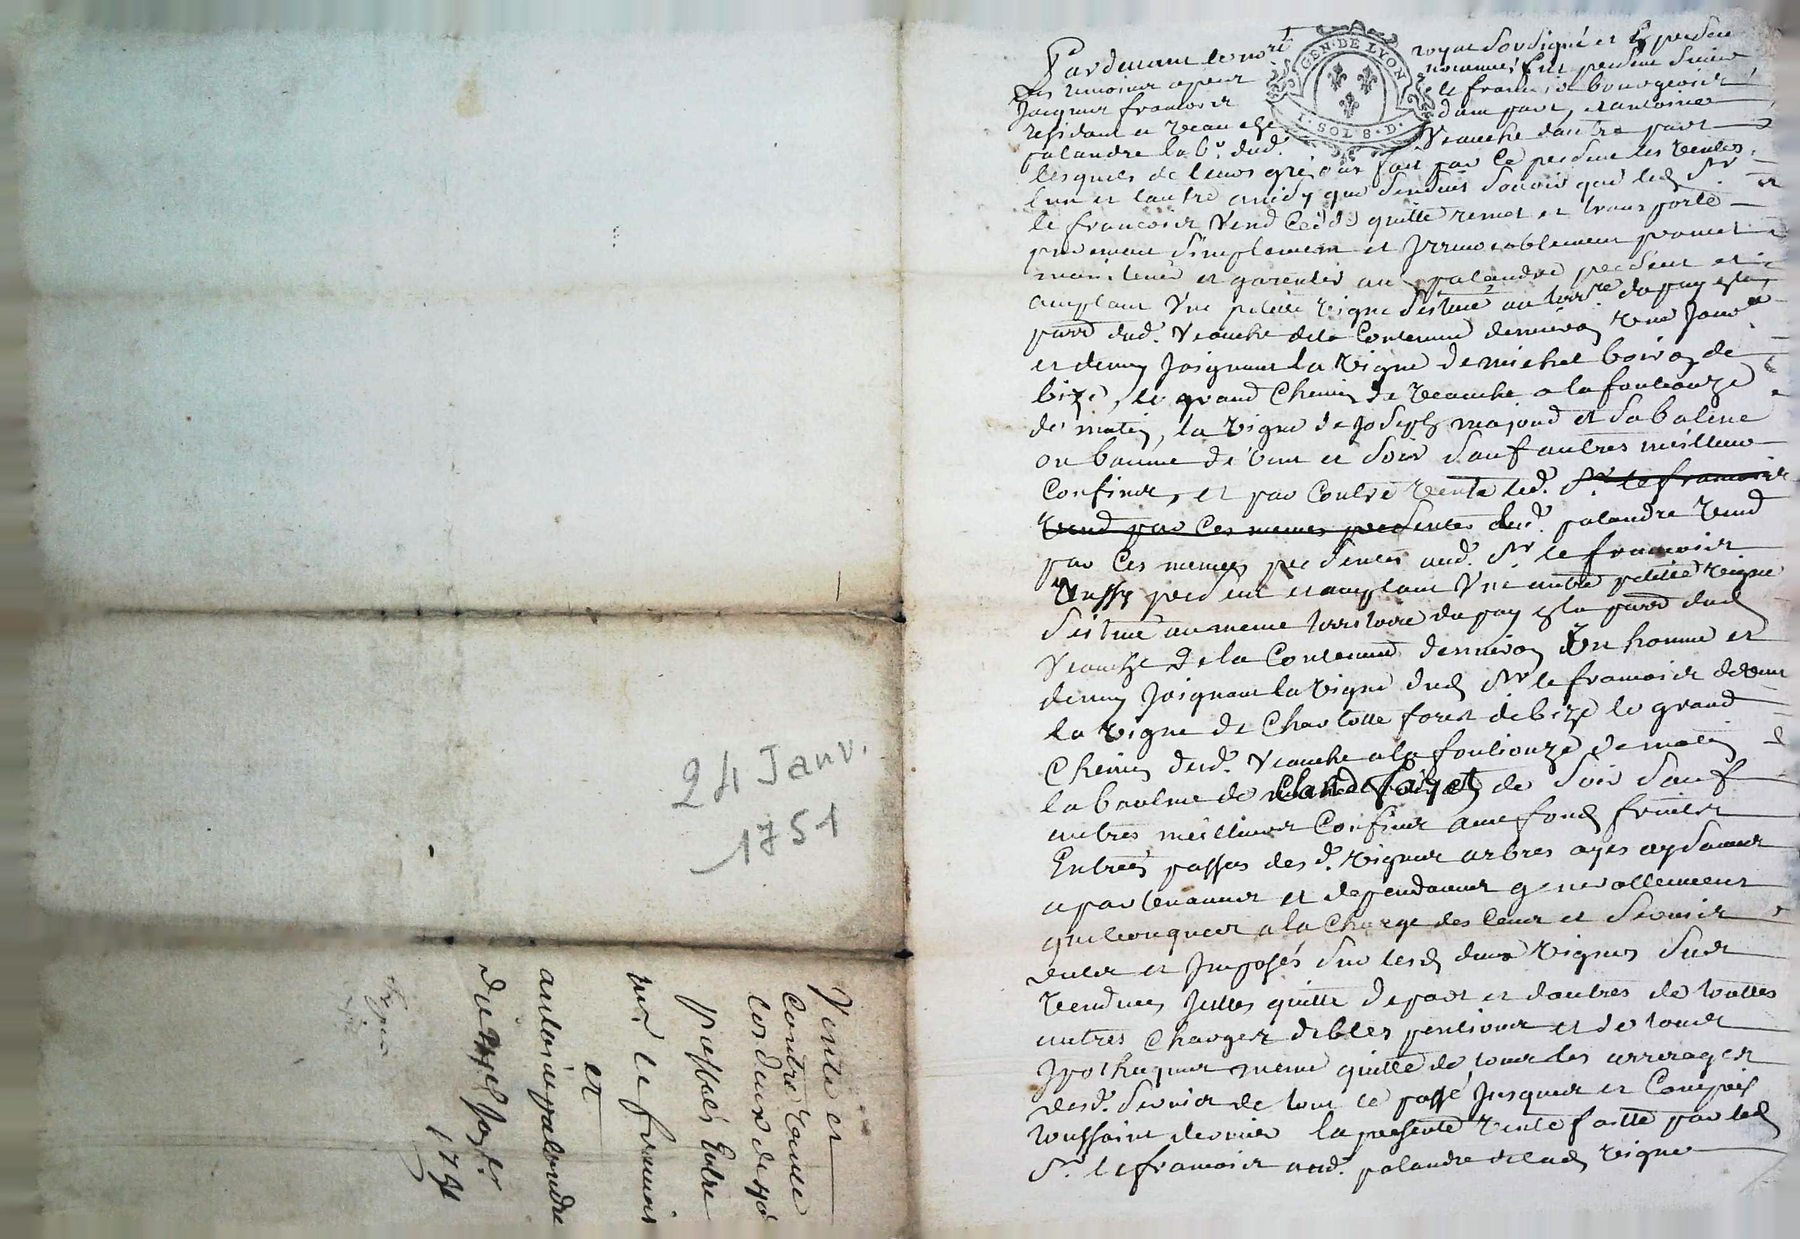 24 Janv.
1751
Vente et
Contre vante
passées Entre
sieur le francois
et
antoine palandre
du 24e Janv.
1751
GEN · DE LYON
1 · SOL 8 · D ·
Pardevant le nore royal soussigné et presens
les temoins apres nommés fut present sieur
Jacques francois le francois bourgeois
residant a veauche dune part, et antoine
palandre lab.r dud. Veauche dautre part
lesquels de leurs gré ont fait par ce present les ventes
lun et lautre ainsy que sensuit scavoir que led Sr
le francois Vend Cedde quitte remet et transporte
purement simplement et Irrevocablement promet
maintenir et garentir au palandre present et
acceptant Une petite vigne situee au terre du puy
parr dud. Veauche de la Contenue denviron Une Journee
et demy Joignant la vigne de michel boiron de
bize, le grand Chemin de veauche a la fouliouze
de matin, la vigne de Joseph majoud et sa balme
ou baume de vent et soir sauf autres meilleurs
Confins, et par Contre vente led. Sr le francois
vend par Ces memes presentes led. palandre vend
par Ces memes presentes aud. Sr le francois
aussy present et acceptant Une autre petite vigne
situee au meme territoire du puy parr dud
Veauche de la Contenue denviron Un homme et
demy Joignant la vigne dud Sr le francois de vent
la vigne de Charlotte forest de bize le grand
Chemin dud. Veauche a la fouliouze de matin
la baulme de Claude de soir sauf
autres meilleurs Confins avec fonds fruits
Entrées passages des d. vignes arbres ayes aysances
apartenances et dependances generallement
quelconques a la Charge des Cens et servis
dules et Imposés sur lesd deux vignes sus
vendues Jcelles quitte de part et dautres de touttes
autres Charges debtes pentions et de tous
Jpotheques meme quitte de tous les arrerages
desd. servis de tout le passé Jusques et Compris
toussaint dernier la presente vente faitte par led
Sr. le francois aud. palandre de lad vigne